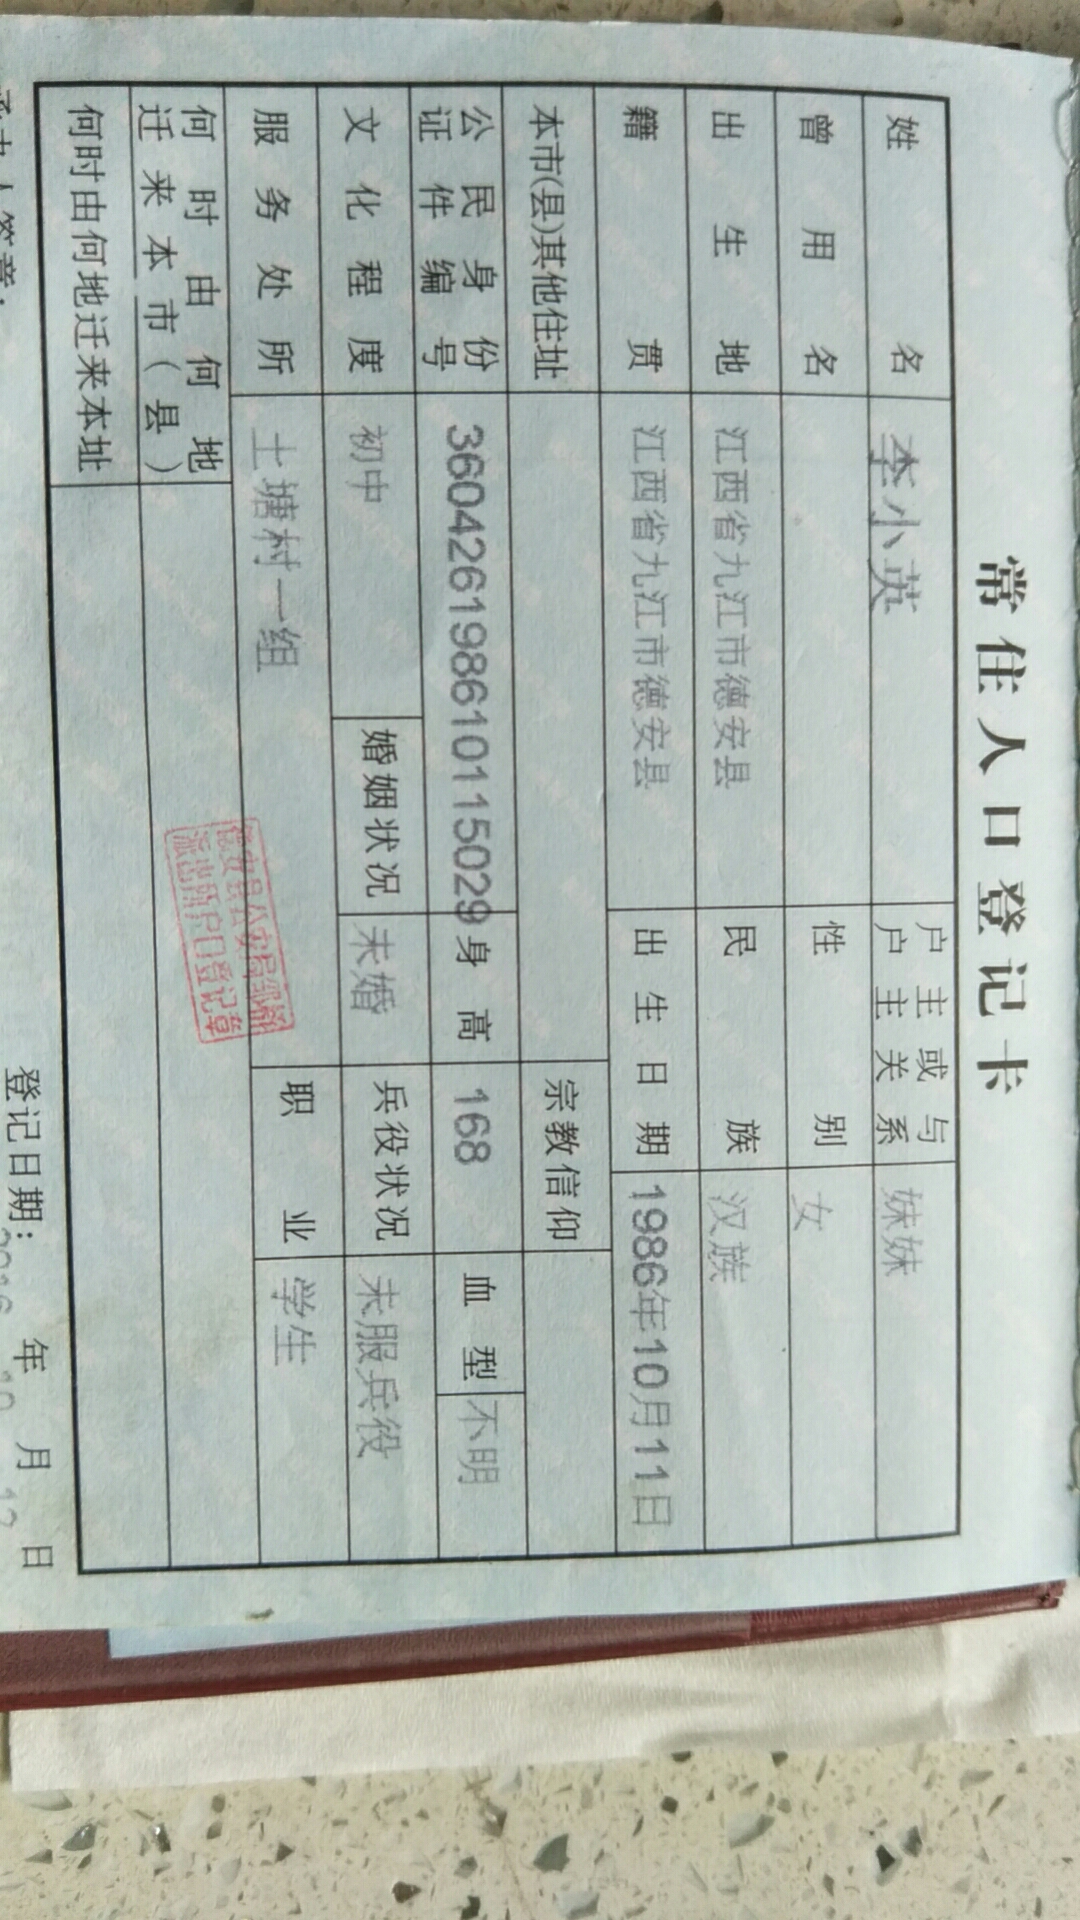 常住人口登记卡
姓名 李小英 户主或与户主关系 妹妹
曾用名 性别 女
出生地 江西省九江市德安县 民族 汉族
籍贯 江西省九江市德安县 出生日期 1986年10月11日
本市(县)其他住址 宗教信仰
公民身份证件编号 360426198610115029 身高 168 血型 不明
文化程度 初中 婚姻状况 未婚 兵役状况 未服兵役
服务处所 土塘村一组 职业 学生
何时由何地迁来本市(县)
何时由何地迁来本址
派出所户口登记章
登记日期： 年 月 日